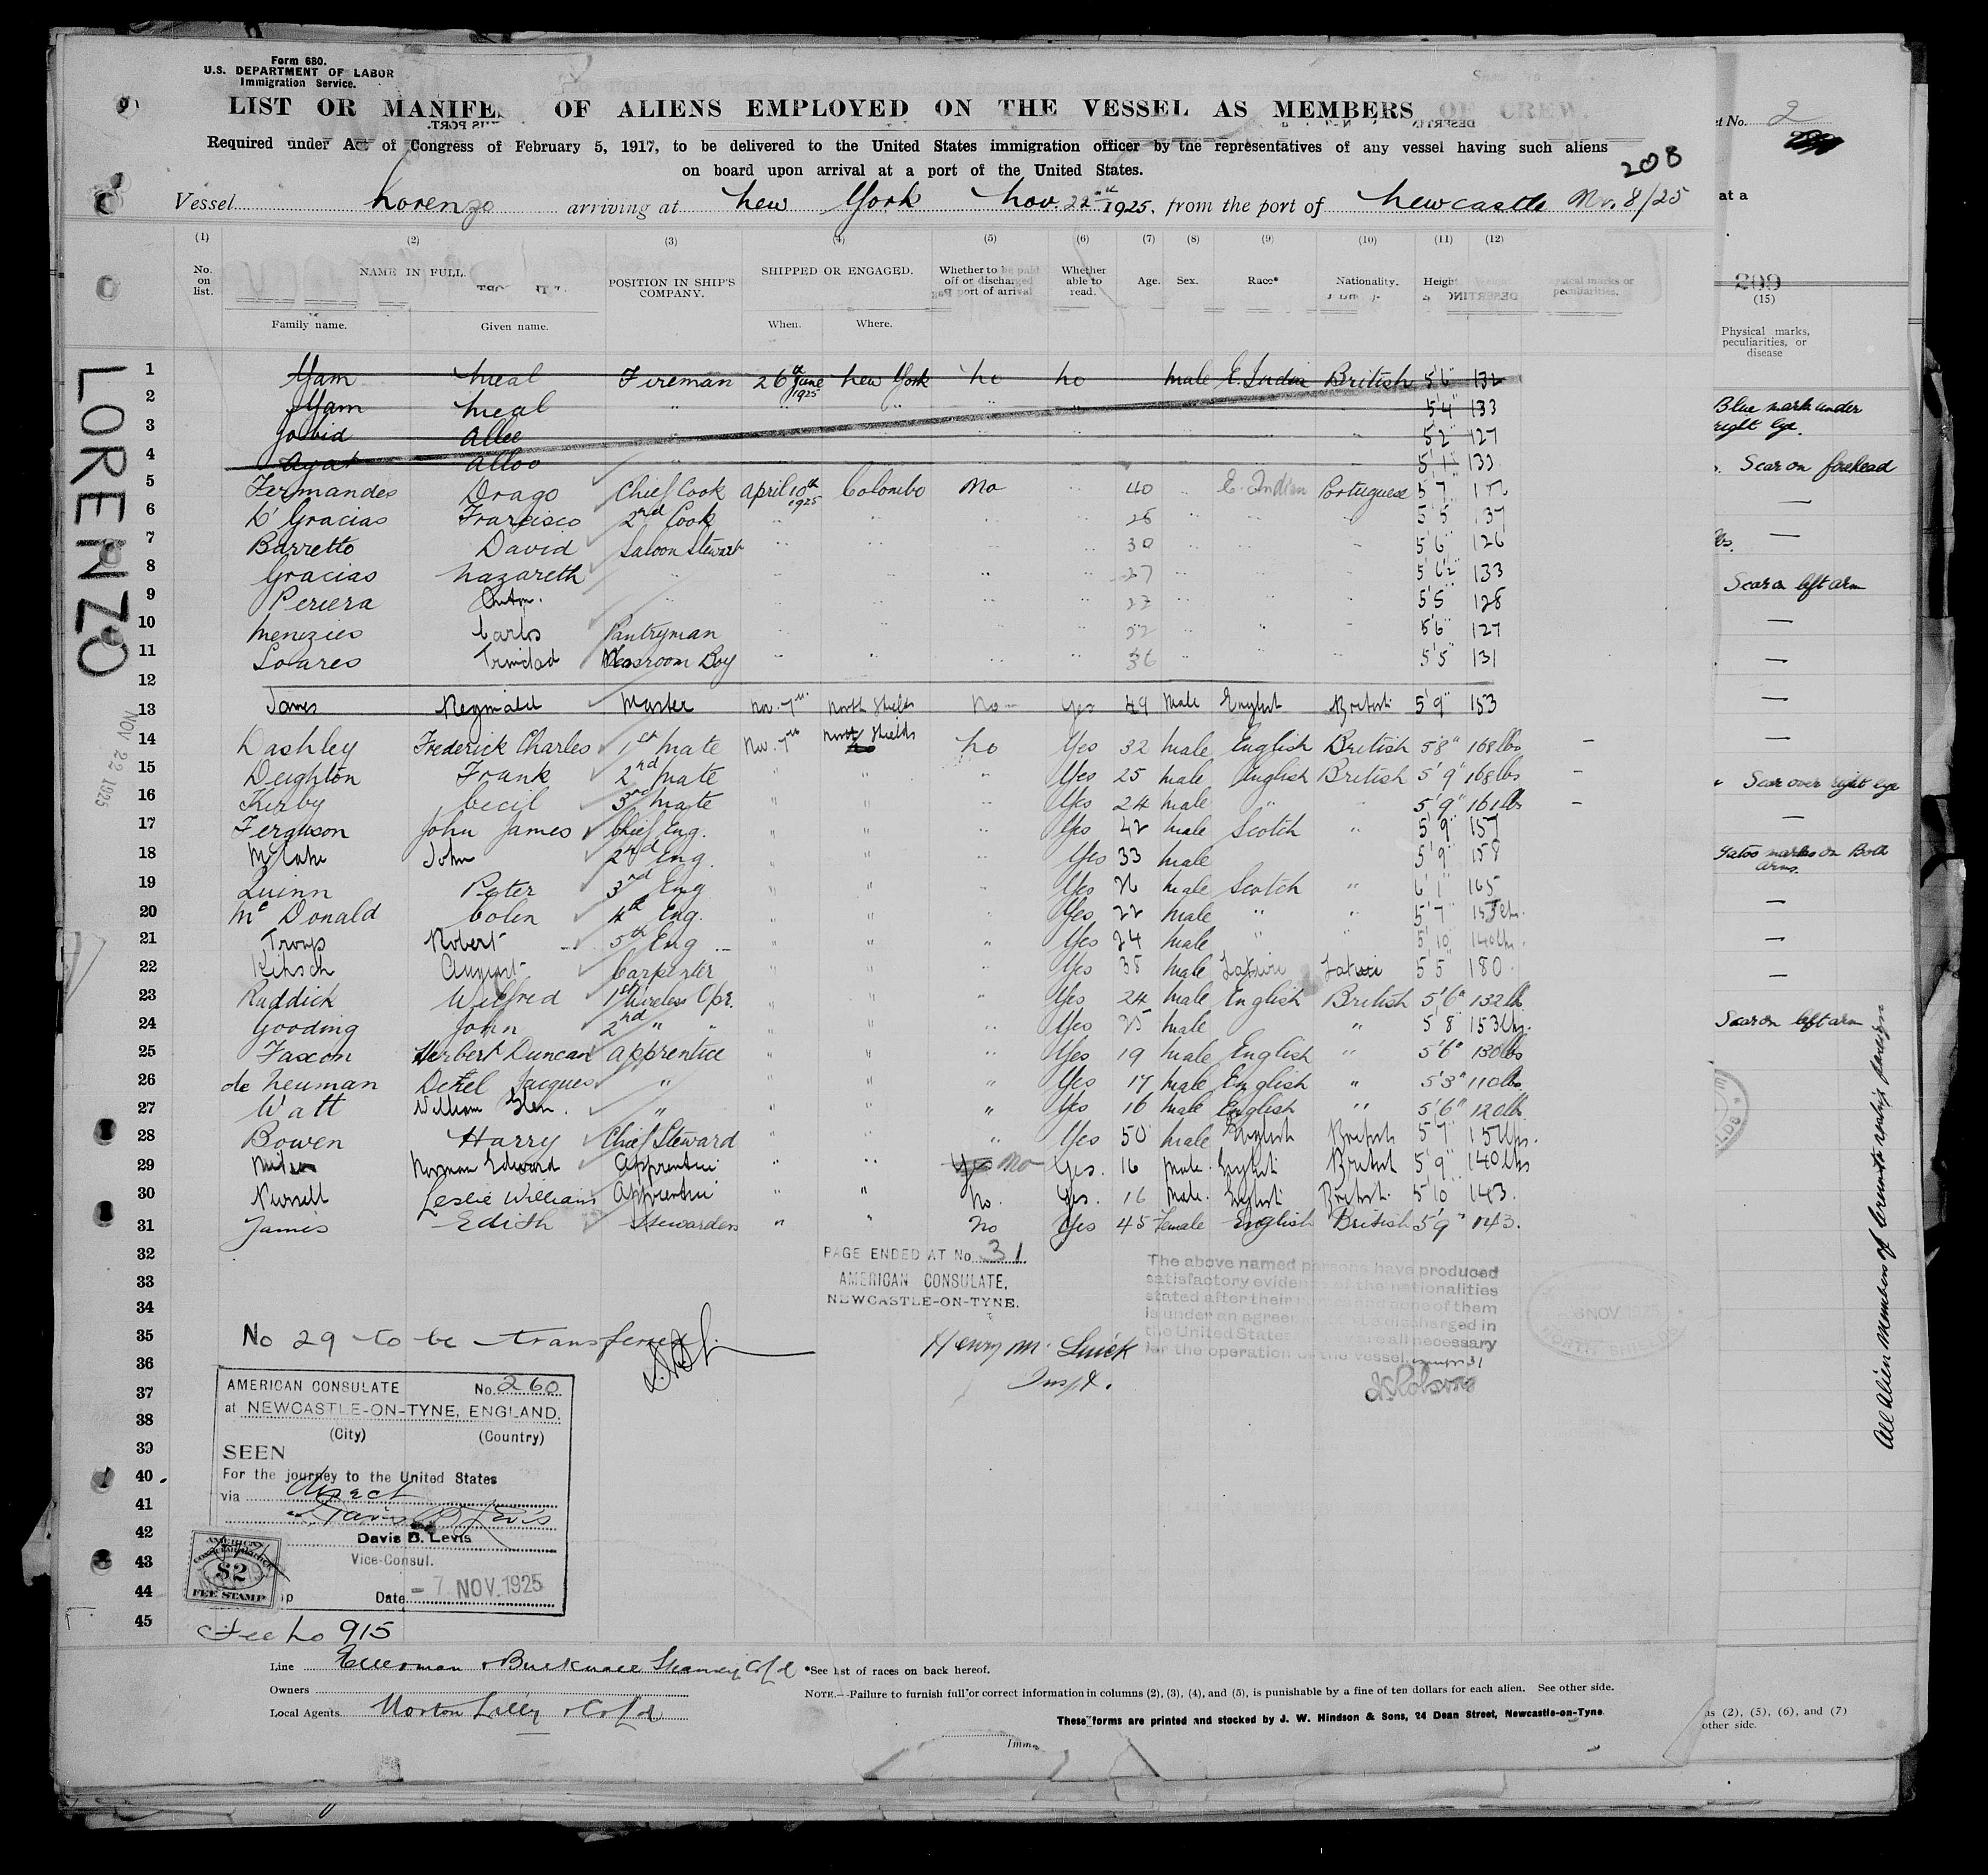 Form 680.
U.S. DEPARTMENT OF LABOR
Immigration Service.
LIST OR MANIFES OF ALIENS EMPLOYED ON THE VESSEL AS MEMBERS OF CREW.
Required under Act of Congress of February 5, 1917, to be delivered to the United States immigration officer by the representatives of any vessel having such aliens
on board upon arrival at a port of the United States.
208
Vessel Lorenzo arriving at New York Nov. 22nd 1925, from the port of Newcastle Nov. 8/25
(1) (2) (3) (4) (5) (6) (7) (8) (9) (10) (11) (12)
No. on list. NAME IN FULL. POSITION IN SHIP'S COMPANY. SHIPPED OR ENGAGED. Whether to be paid off or discharged port of arrival Whether able to read. Age. Sex. Race* Nationality. Height Weight Physical marks or peculiarities.
Family name. Given name. When. Where.
1 Yam Meal Fireman 26th June 1925 New York No No Male E. India British 5'6" 132
2 Yam Meal " " " " " 5'4" 133
3 Jobid Allee 5'2" 127
4 Ayat Alloo 5'1" 133
5 Fermandes Drago Chief Cook April 10th 1925 Colombo No " 40 " E. Indian Portuguese 5'7"
6 D'Gracias Francisco 2nd Cook 5'5" 137
7 Barretto David Saloon Steward 30 5'6" 126
8 Gracias Nazareth " 27 5'6½" 133
9 Periera Anton. 5'5" 128
10 Menezies Carlos Pantryman 5'6" 127
11 Soares Trinidad Messroom Boy 36 5'5" 131
12
13 James Reginald Master Nov. 7th North Shields No Yes 49 Male English British 5'9" 153
14 Dashley Frederick Charles 1st Mate Nov. 7th North Shields No Yes 32 Male English British 5'8" 168 lbs
15 Deighton Frank 2nd Mate " " " Yes 25 Male English British 5'9" 168 lbs
16 Kirby Cecil 3rd Mate " " " Yes 24 Male " " 5'9" 161 lbs
17 Ferguson John James Chief Eng. " " " Yes 42 Male Scotch " 5'9" 157
18 John 2nd Eng. " " Yes 33 Male 5'9" 158
19 Quinn Peter 3rd Eng " " " Yes 26 Male Scotch " 6'1" 165
20 Mc Donald Colen 4th Eng. " " " Yes 22 Male " " 5'7"
21 Robert 5th Eng " " " Yes 24 Male " " 5'10" 140 lbs.
22 August Carpenter " " " Yes 38 Male 5'5" 180
23 Ruddick Wilfred 1st Wireless Opr. " " " Yes 24 Male English British 5'6" 132 lb
24 Gooding John 2nd " " " " " Yes 25 Male " 5'8" 153 lbs.
25 Faxon Herbert Duncan Apprentice " " " Yes 19 Male English " 5'6" 130 lbs
26 de Neuman Jacques " " " " Yes 17 Male English " 5'3" 110 lbs.
27 Watt William Glen. " " " " Yes 16 Male English " 5'6" 120 lb.
28 Bowen Harry Chief Steward " " " Yes 50 Male English British 5'7" 157 lbs.
29 Norman Edward Apprentice " " Yes No Yes. 16 Male. English British 5'9" 140 lbs
30 Leslie William Apprentice " " No. Yes. 16 Male. English British. 5'10" 143.
31 James Edith Stewardess " " No Yes 45 Female English British 5'9" 143.
32
33
34
35
36
37
38
39
40
41
42
43
44
45
PAGE ENDED AT No. 31
AMERICAN CONSULATE,
NEWCASTLE-ON-TYNE.
The above named persons have produced
satisfactory evidence of the nationalities
stated after their names and none of them
is under an agreement to be discharged in
the United States all necessary
for the operation of the vessel
No 29 to be transferred
Henry M.
Inspt.
AMERICAN CONSULATE No. 260
at NEWCASTLE-ON-TYNE, ENGLAND.
(City) (Country)
SEEN
For the journey to the United States
via direct
Davis B. Levis
Davis B. Levis
Vice-Consul.
Date - 7 NOV. 1925
AMERICAN
$2
FEE STAMP
Fee No 915
Line Ellerman & Bucknall Steamship Co Ld
Owners
Local Agents. Norton Lilly & Co Ld
*See list of races on back hereof.
NOTE.—Failure to furnish full or correct information in columns (2), (3), (4), and (5), is punishable by a fine of ten dollars for each alien. See other side.
These forms are printed and stocked by J. W. Hindson & Sons, 24 Dean Street, Newcastle-on-Tyne
Imm.
LORENZO
NOV 22 1925
t No. 2
at a
209
(15)
Physical marks, peculiarities, or disease
Blue mark under
right Eye.
Scar on forehead
Scar on left arm
Scar over right eye
Tatoo marks on Both
arms.
Scar on left arm
All Alien Members of Crew to reship foreign
ns (2), (5), (6), and (7)
other side.